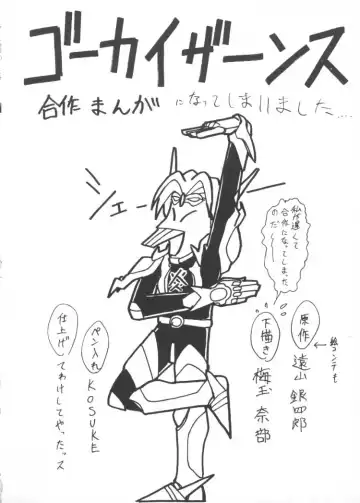 ゴーカイザーンス
合作まんがになってしまいました…
シェー
私が遅くて
合作になってしまった
のだ〜
絵コンテも
原作 遠山 銀四郎
下描き 梅玉 奈部
ペン入れ KOSUKE
仕上げ てわけしてやったっス